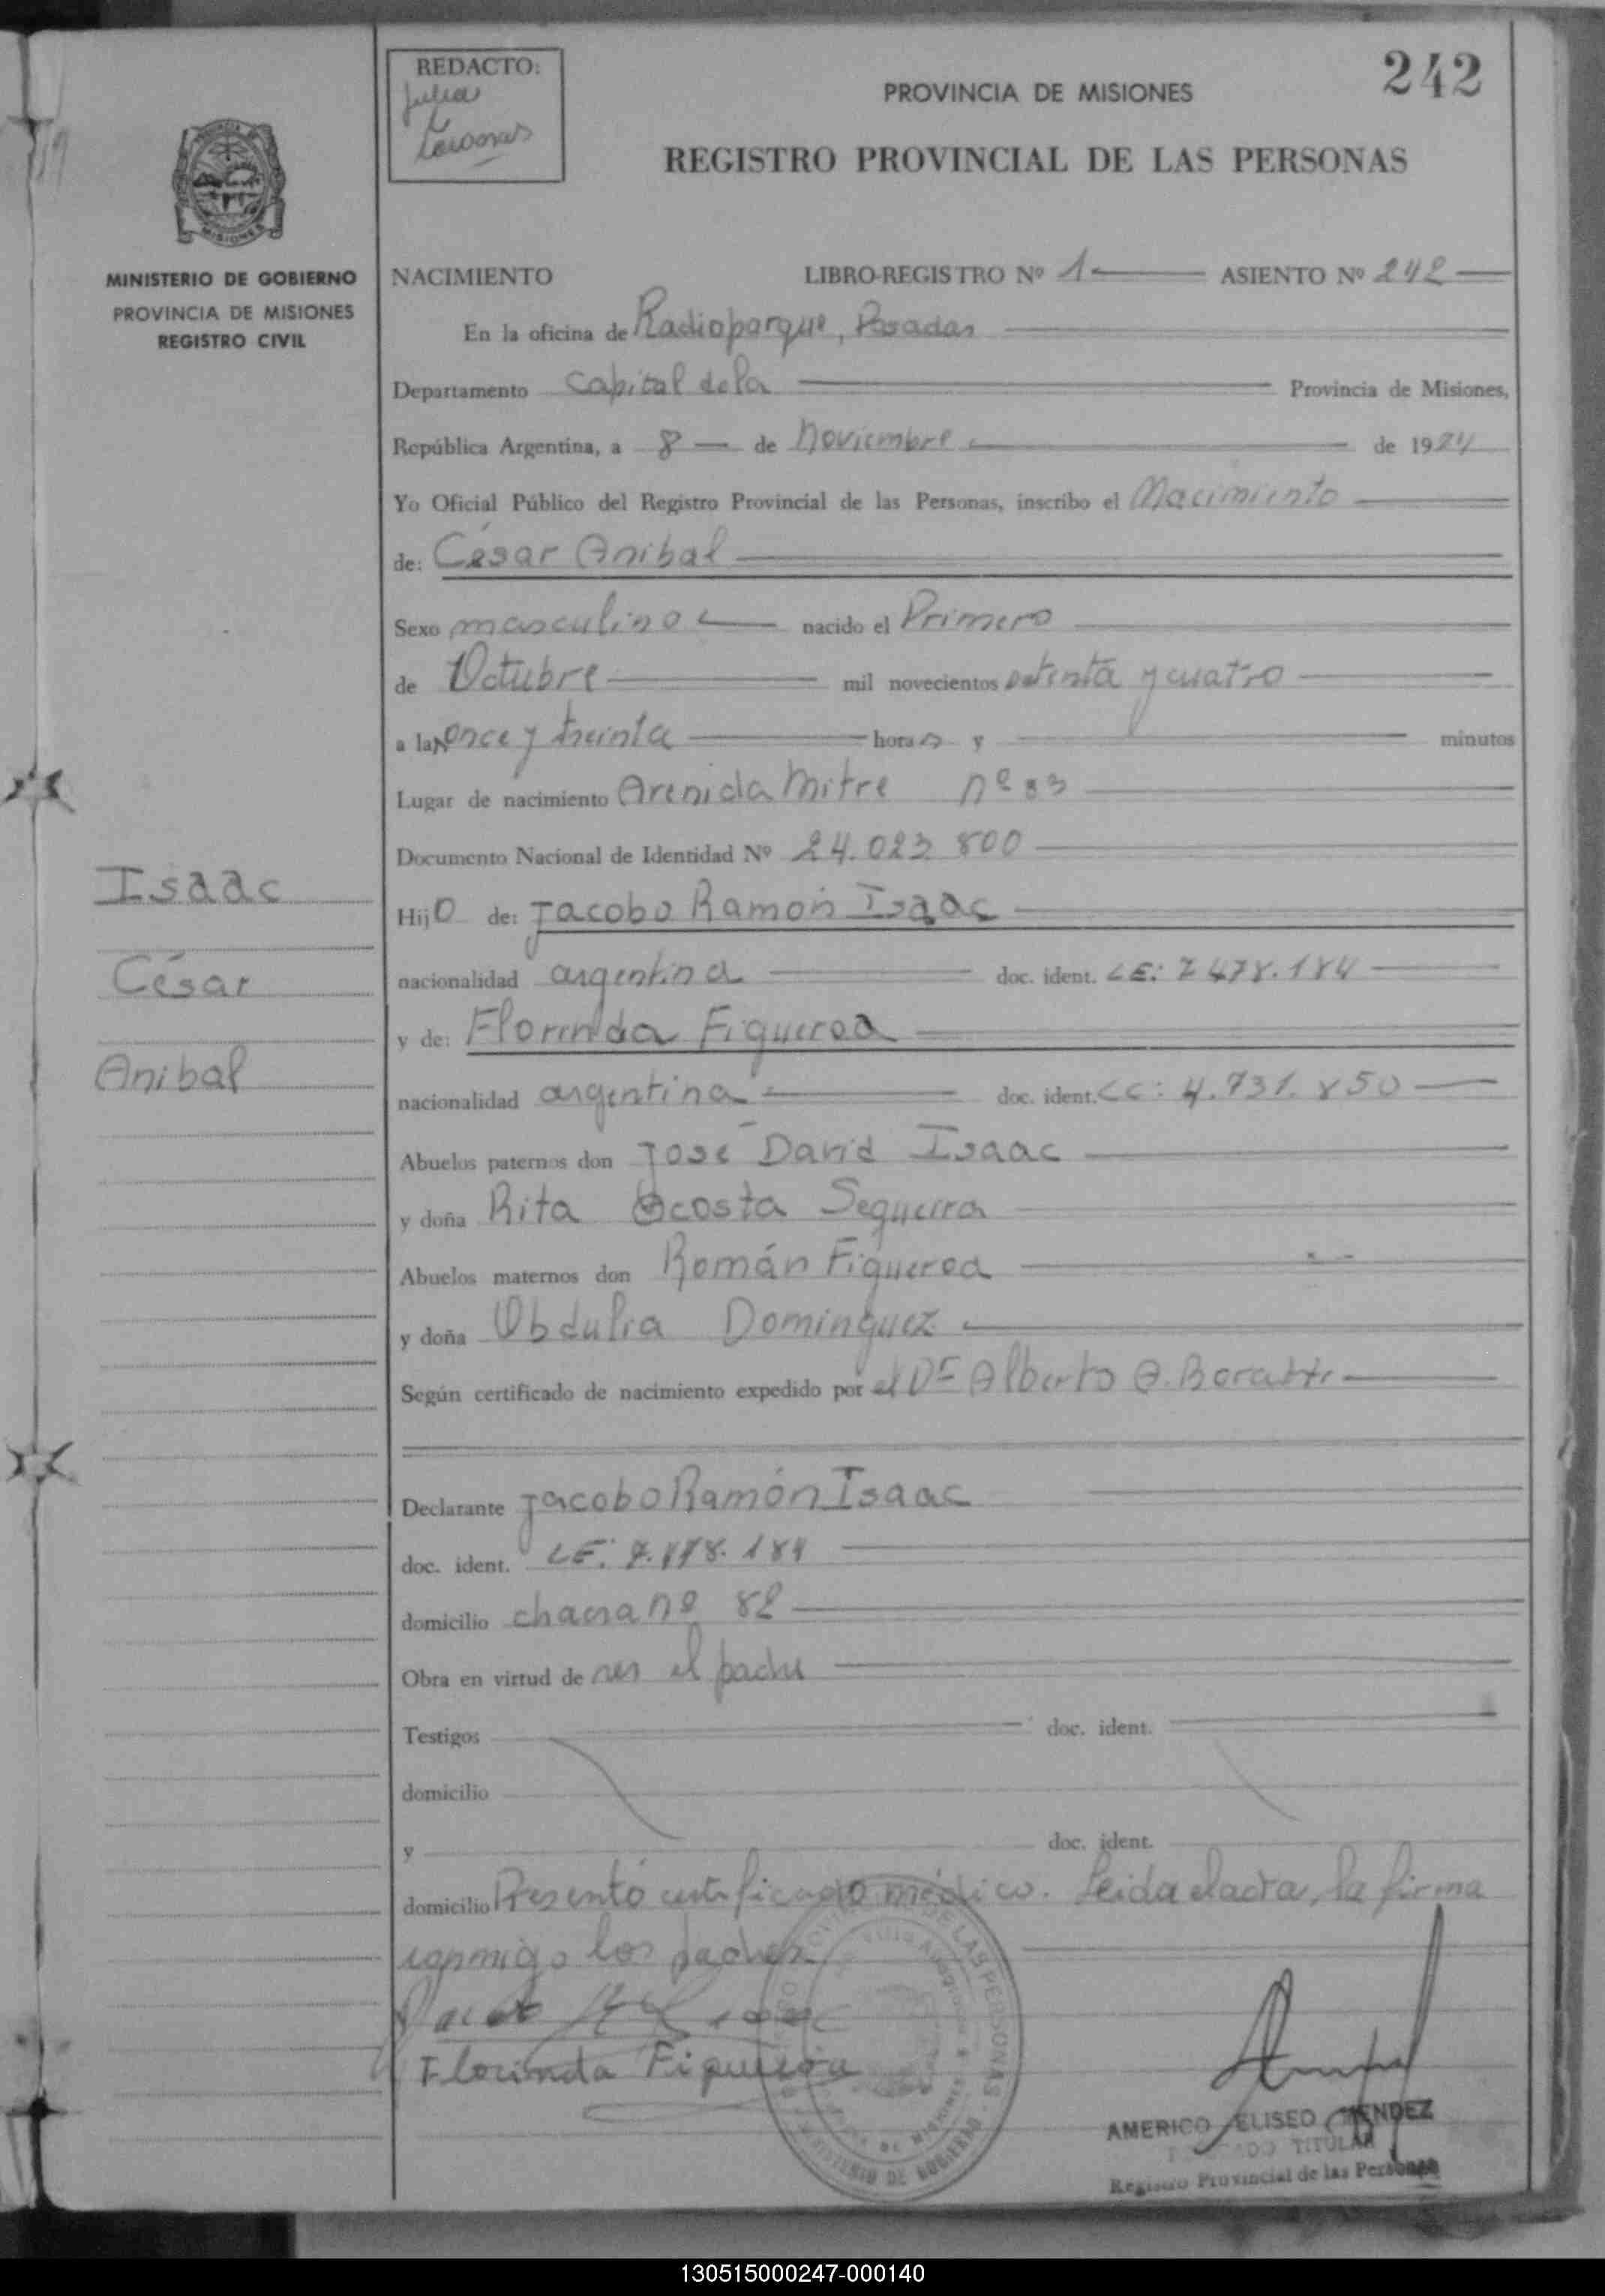 REDACTO:
Julia
242
PROVINCIA DE MISIONES
REGISTRO PROVINCIAL DE LAS PERSONAS
MISIONES
MINISTERIO DE GOBIERNO
PROVINCIA DE MISIONES
REGISTRO CIVIL
NACIMIENTO LIBRO-REGISTRO Nº 1 ASIENTO Nº 242
En la oficina de Radioparque, Posadas
Departamento Capital de la Provincia de Misiones,
República Argentina, a 8 de Noviembre de 1974
Yo Oficial Público del Registro Provincial de las Personas, inscribo el Nacimiento
de: César Anibal
Sexo masculino nacido el Primero
de Octubre mil novecientos setenta y cuatro
a las once y treinta horas y minutos
Lugar de nacimiento Avenida Mitre nº 33
Documento Nacional de Identidad Nº 24.023.800
Isaac
Hijo de: Jacobo Ramón Isaac
César
nacionalidad argentina doc. ident. LE: 7.478.184
y de: Florinda Figueroa
Anibal
nacionalidad argentina doc. ident. LC: 4.731.850
Abuelos paternos don José David Isaac
y doña Rita Acosta Sequeira
Abuelos maternos don Román Figueroa
y doña Obdulia Dominguez
Según certificado de nacimiento expedido por el Dr Alberto A.
Declarante Jacobo Ramón Isaac
doc. ident. LE: 7.478.184
domicilio chacra nº 82
Obra en virtud de ser el padre
Testigos doc. ident.
domicilio
y doc. ident.
domicilio Presentó certificado médico. Leida el acta, la firma
conmigo los padres.
Florinda Figueroa
MINISTERIO DE GOBIERNO
AMERICO ELISEO MENDEZ
TITULAR
Registro Provincial de las Personas
130515000247-000140